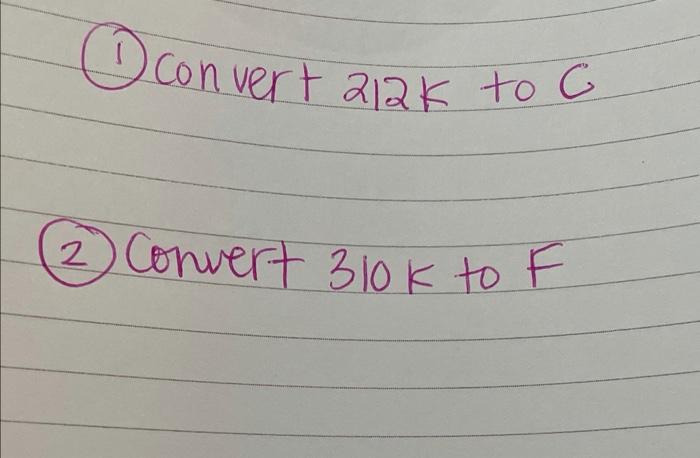 ① convert 212K to C
② Convert 310K to F